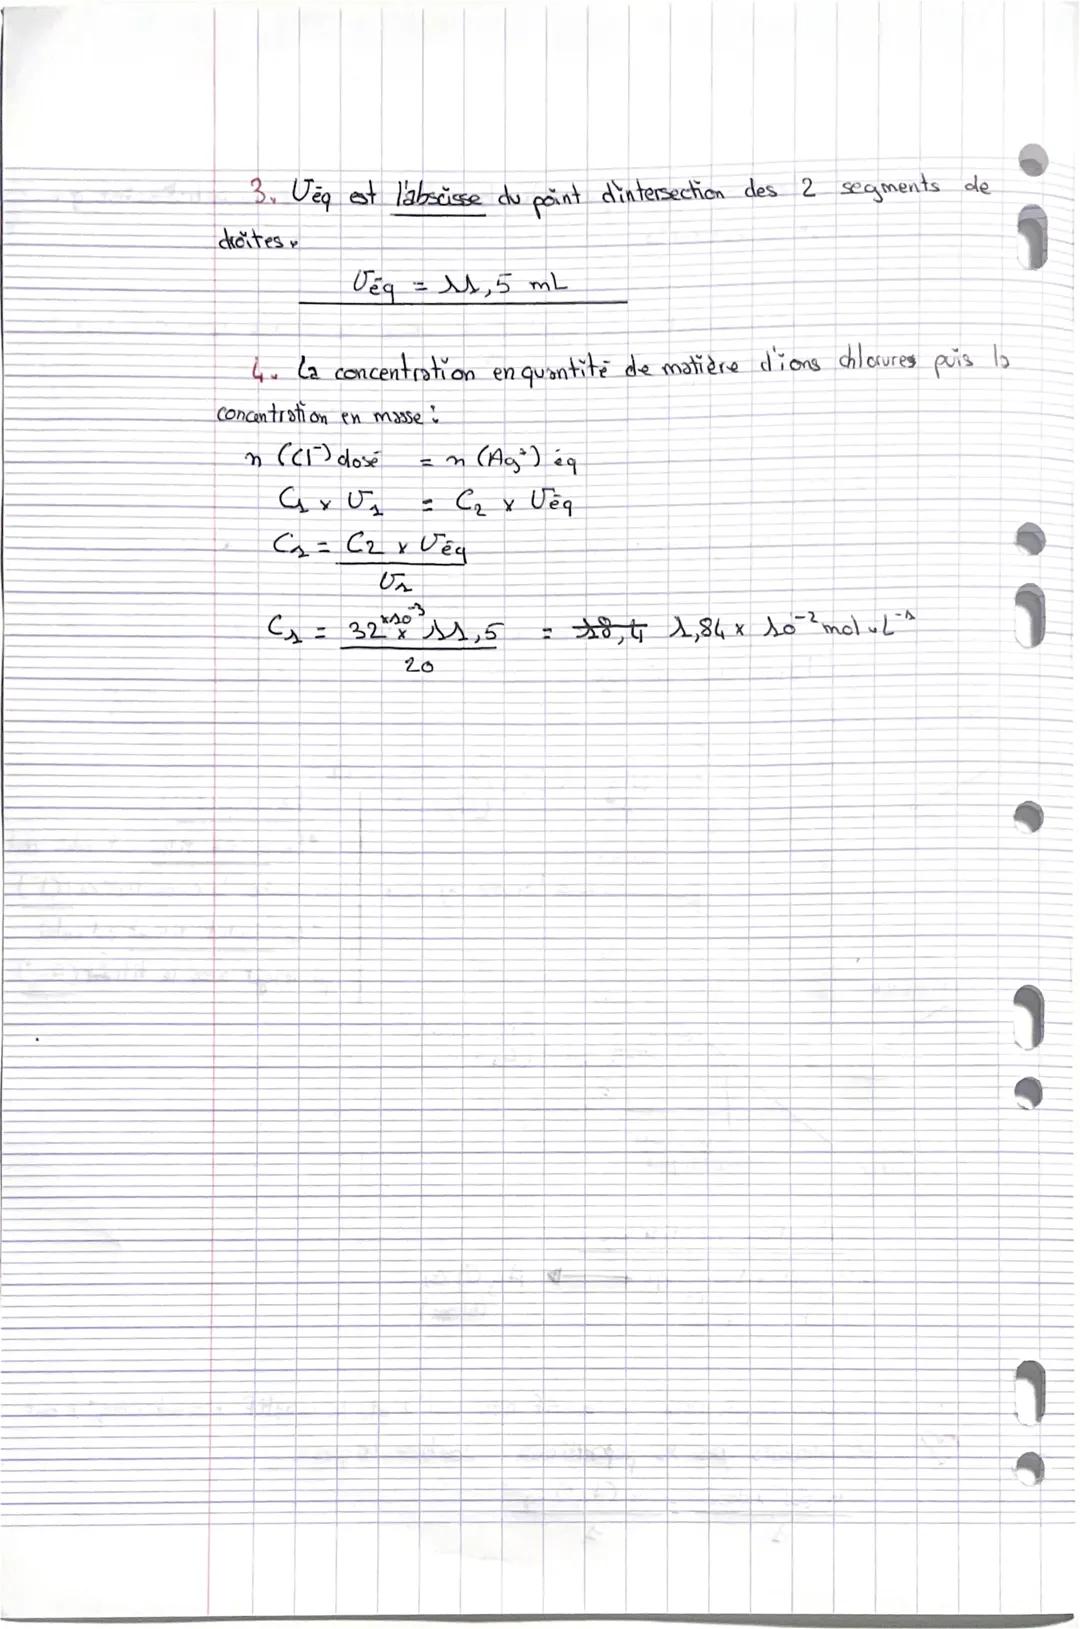 3. Véq est l'abscisse du point d'intersection des 2 segments de
droites.
Véq = 11,5 mL
4. La concentration en quantité de matière d'ions chlorures puis la
concentration en masse :
n (Cl⁻) dosé = n (Ag⁺) éq
C₁ x V₁ = C₂ x Véq
C₁ = C₂ x Véq / V₁
C₁ = 32 x10⁻³ x 11,5 / 20 = 18,4 1,84 x 10⁻² mol.L⁻¹